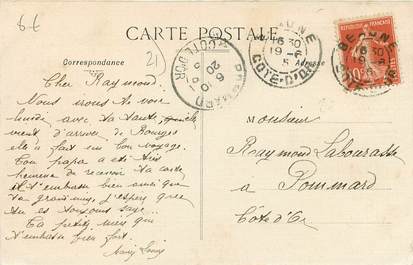 6€
CARTE POSTALE
Correspondance
21
Adresse
BEAUNE
16 30
19-6
COTE-D'OR
POMMARD
COTE D'OR
6 10
20 - 6
BEAUNE
16 30
19-6
REPUBLIQUE FRANÇAISE
10
Cher Raymond.
Nous irons te voir
lundi avec ta tante, qu'elle
vient d'arriver de Bourges
elle a fait un bon voyage.
Ton papa a été très
heureux de recevoir ta carte
il t'embrasse bien ainsi que
ta grand'mère, j'espère que
tu es toujours sage.
Ta petite mère qui
t'embrasse bien fort.
Monsieur
Raymond Labourasse
à Pommard
Côte d'Or